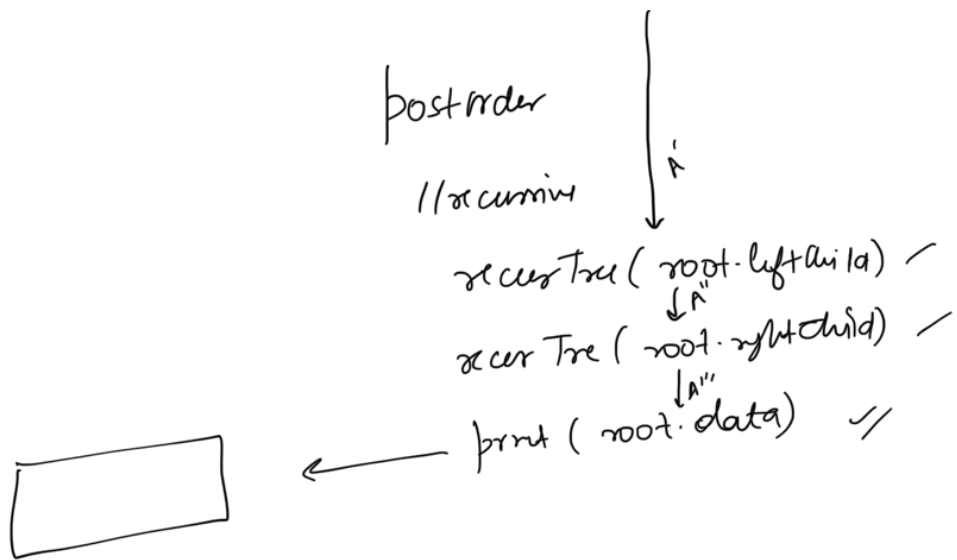 postorder
A'
//recursive
recurTree( root.leftchild)
A''
recurTree( root.rightchild)
A'''
print ( root.data)